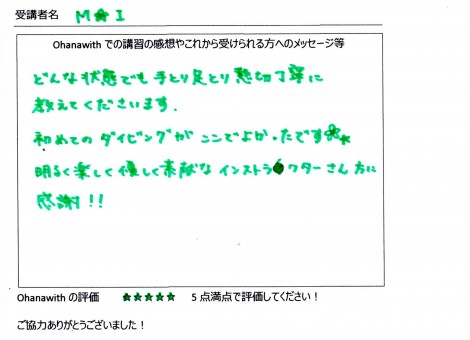 受講者名 M★I
Ohanawith での講習の感想やこれから受けられる方へのメッセージ等
どんな状態でも手とり足とり懇切丁寧に
教えてくださいます.
初めてのダイビングがここでよかったです
明るく楽しく優しく素敵なインストラクターさん方に
感謝!!
Ohanawith の評価 ★★★★★ 5 点満点で評価してください！
ご協力ありがとうございました！